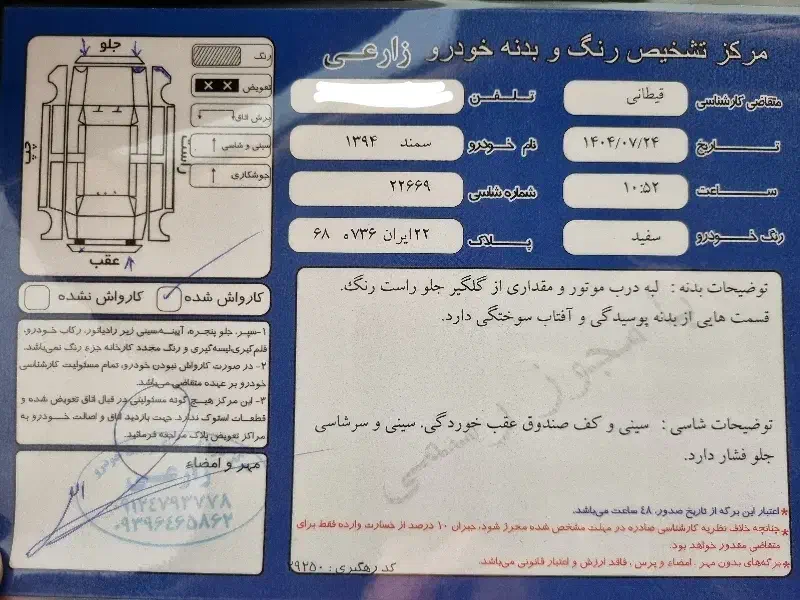 مرکز تشخیص رنگ و بدنه خودرو زارعی
متقاضی کارشناسی قیطانی
تلفن
تاریخ ۱۴۰۴/۰۷/۲۴
نام خودرو سمند ۱۳۹۴
ساعت ۱۰:۵۲
شماره شاسی ۲۲۶۶۹
رنگ خودرو سفید
پلاک ۲۲ایران ۷۳۶ه ۶۸
توضیحات بدنه : لبه درب موتور و مقداری از گلگیر جلو راست رنگ.
قسمت هایی از بدنه پوسیدگی و آفتاب سوختگی دارد.
توضیحات شاسی : سینی و کف صندوق عقب خوردگی. سینی و سرشاسی
جلو فشار دارد.
*اعتبار این برگه از تاریخ صدور، ۴۸ ساعت می‌باشد.
*چنانچه خلاف نظریه کارشناسی صادره در مهلت مشخص شده محرز شود، جبران ۱۰ درصد از خسارت وارده فقط برای
متقاضی مقدور خواهد بود.
*برگه‌های بدون مهر ، امضاء و پرس ، فاقد ارزش و اعتبار قانونی می‌باشد.
کد رهگیری : ۲۹۲۵۰
جلو
چپ
راست
عقب
رنگ
تعویض
برش اتاق
سینی و شاسی
جوشکاری
کارواش شده
کارواش نشده
۱-سپر، جلو پنجره، آیینه،سینی زیر رادیاتور، رکاب خودرو،
قلم‌گیری،لیسه‌گیری و رنگ مجدد کارخانه جزء رنگ نمی‌باشد.
۲- در صورت کارواش نبودن خودرو، تمام مسئولیت کارشناسی
خودرو بر عهده متقاضی می‌باشد.
۳- این مرکز هیچ گونه مسئولیتی در قبال اتاق تعویض شده و
قطعات استوک ندارد. جهت بازدید اتاق و اصالت خودرو به
مراکز تعویض پلاک مراجعه فرمائید.
مهر و امضاء
زارعی
۰۹۱۲۴۷۹۳۷۷۸
۰۹۳۹۶۴۶۵۸۶۲
مجوز رسمی